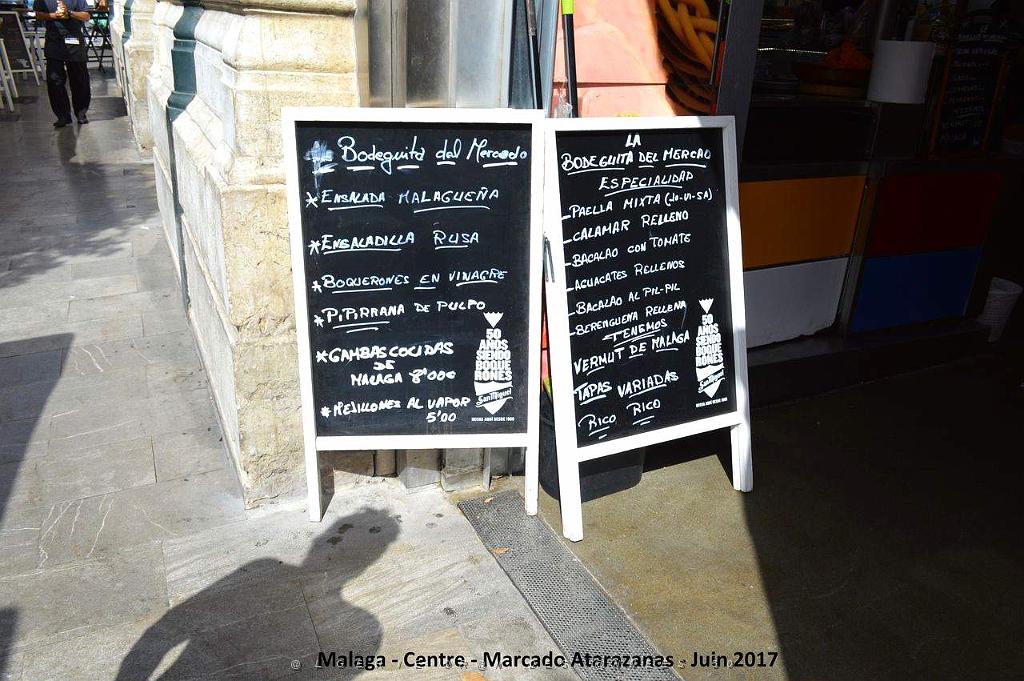 Bodeguita dal Mercado
* ENSALADA MALAGUEÑA
* ENSALADILLA RUSA
* BOQUERONES EN VINAGRE
* PIPIRRANA DE PULPO
* GAMBAS COCIDAS
DE
MALAGA 8'00€
* MEJILLONES AL VAPOR
5'00
50
AÑOS
SIENDO
BOQUE
RONES
San Miguel
MALAGA AQUÍ DESDE 1966
LA
BODEGUITA DEL MERCAO
ESPECIALIDAD
- PAELLA MIXTA (JO-SI-SA)
- CALAMAR RELLENO
- BACALAO CON TOMATE
- AGUACATES RELLENOS
- BACALAO AL PIL-PIL
- BERENGUENA RELLENA
TENEMOS
VERMUT DE MALAGA
TAPAS VARIADAS
RICO RICO
50
AÑOS
SIENDO
BOQUE
RONES
San Miguel
Malaga - Centre - Marcado Atarazanas - Juin 2017